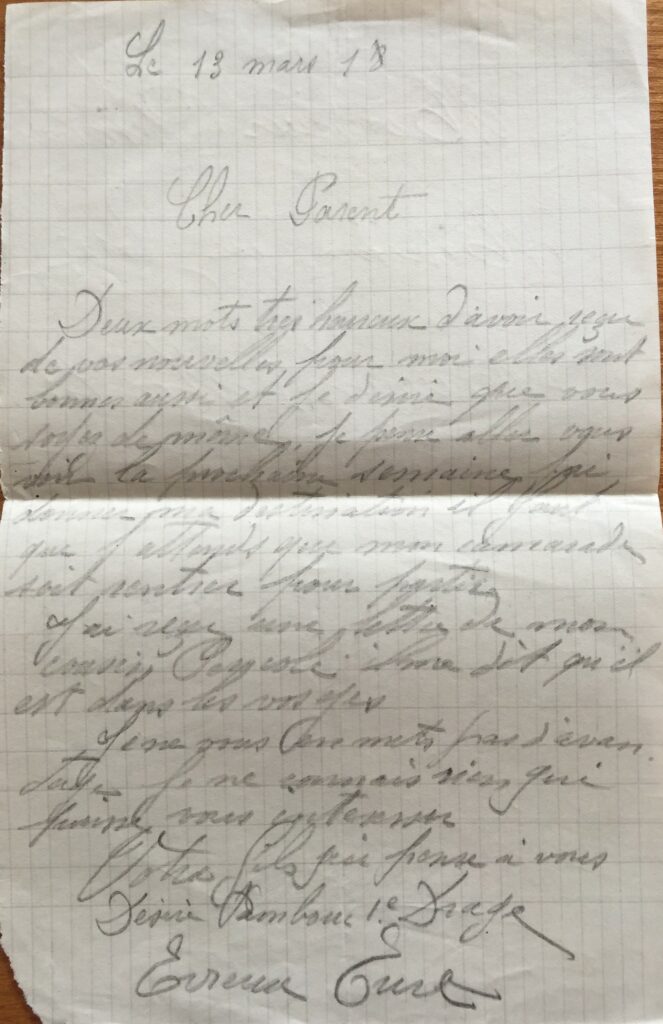 Le 13 mars 18
Cher Parent
Deux mots tres heureux d'avoir reçu
de vos nouvelles, pour moi elles sont
bonnes aussi et je desire que vous
soyez de même, je pense aller vous
voir la prochaine semaine j'ai
donner ma destination il faut
que j'attends que mon camarade
soit rentrer pour partir
J'ai reçu une lettre de mon
cousin il me dit qu'il
est dans les vosges
Je ne vous en mets pas d'avan
tage je ne connais rien qui
puisse vous interesser
Votre fils qui pense à vous
Désiré 1e Drag
Evreux Eure